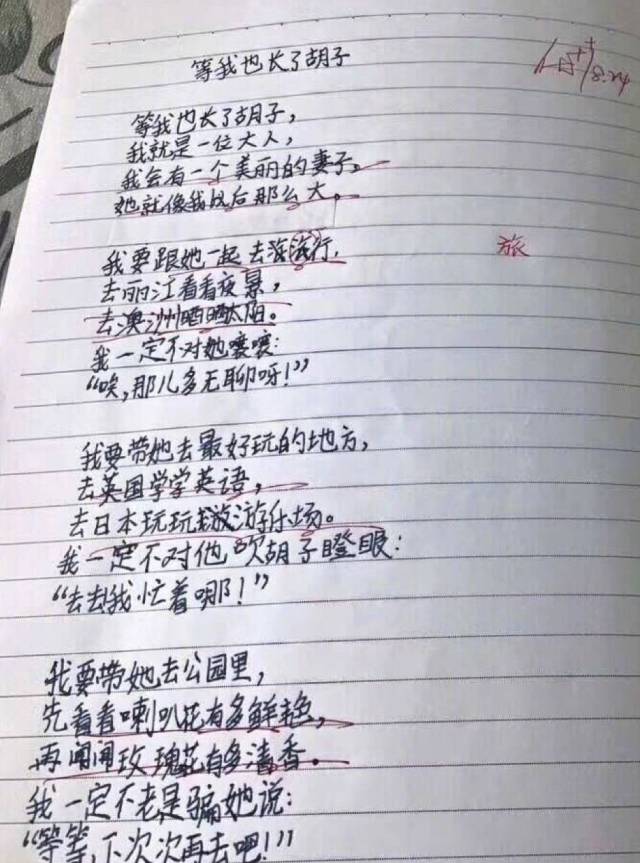 等我也长了胡子
优++
8.24
等我也长了胡子，
我就是一位大人，
我会有一个美丽的妻子。
她就像我以后那么大。
我要跟她一起去旅行，
旅
去丽江看看夜景，
去澳沙州晒晒太阳。
我一定不对她嚷嚷：
“唉，那儿多无聊呀！”
我要带她去最好玩的地方，
去英国学学英语，
去日本玩玩游乐场。
我一定不对他吹胡子瞪眼：
“去去我忙着哪！”
我要带她去公园里，
先看看喇叭花有多鲜艳，
再闻闻玫瑰花有多清香。
我一定不老是骗她说：
“等等，下次次再去吧！”